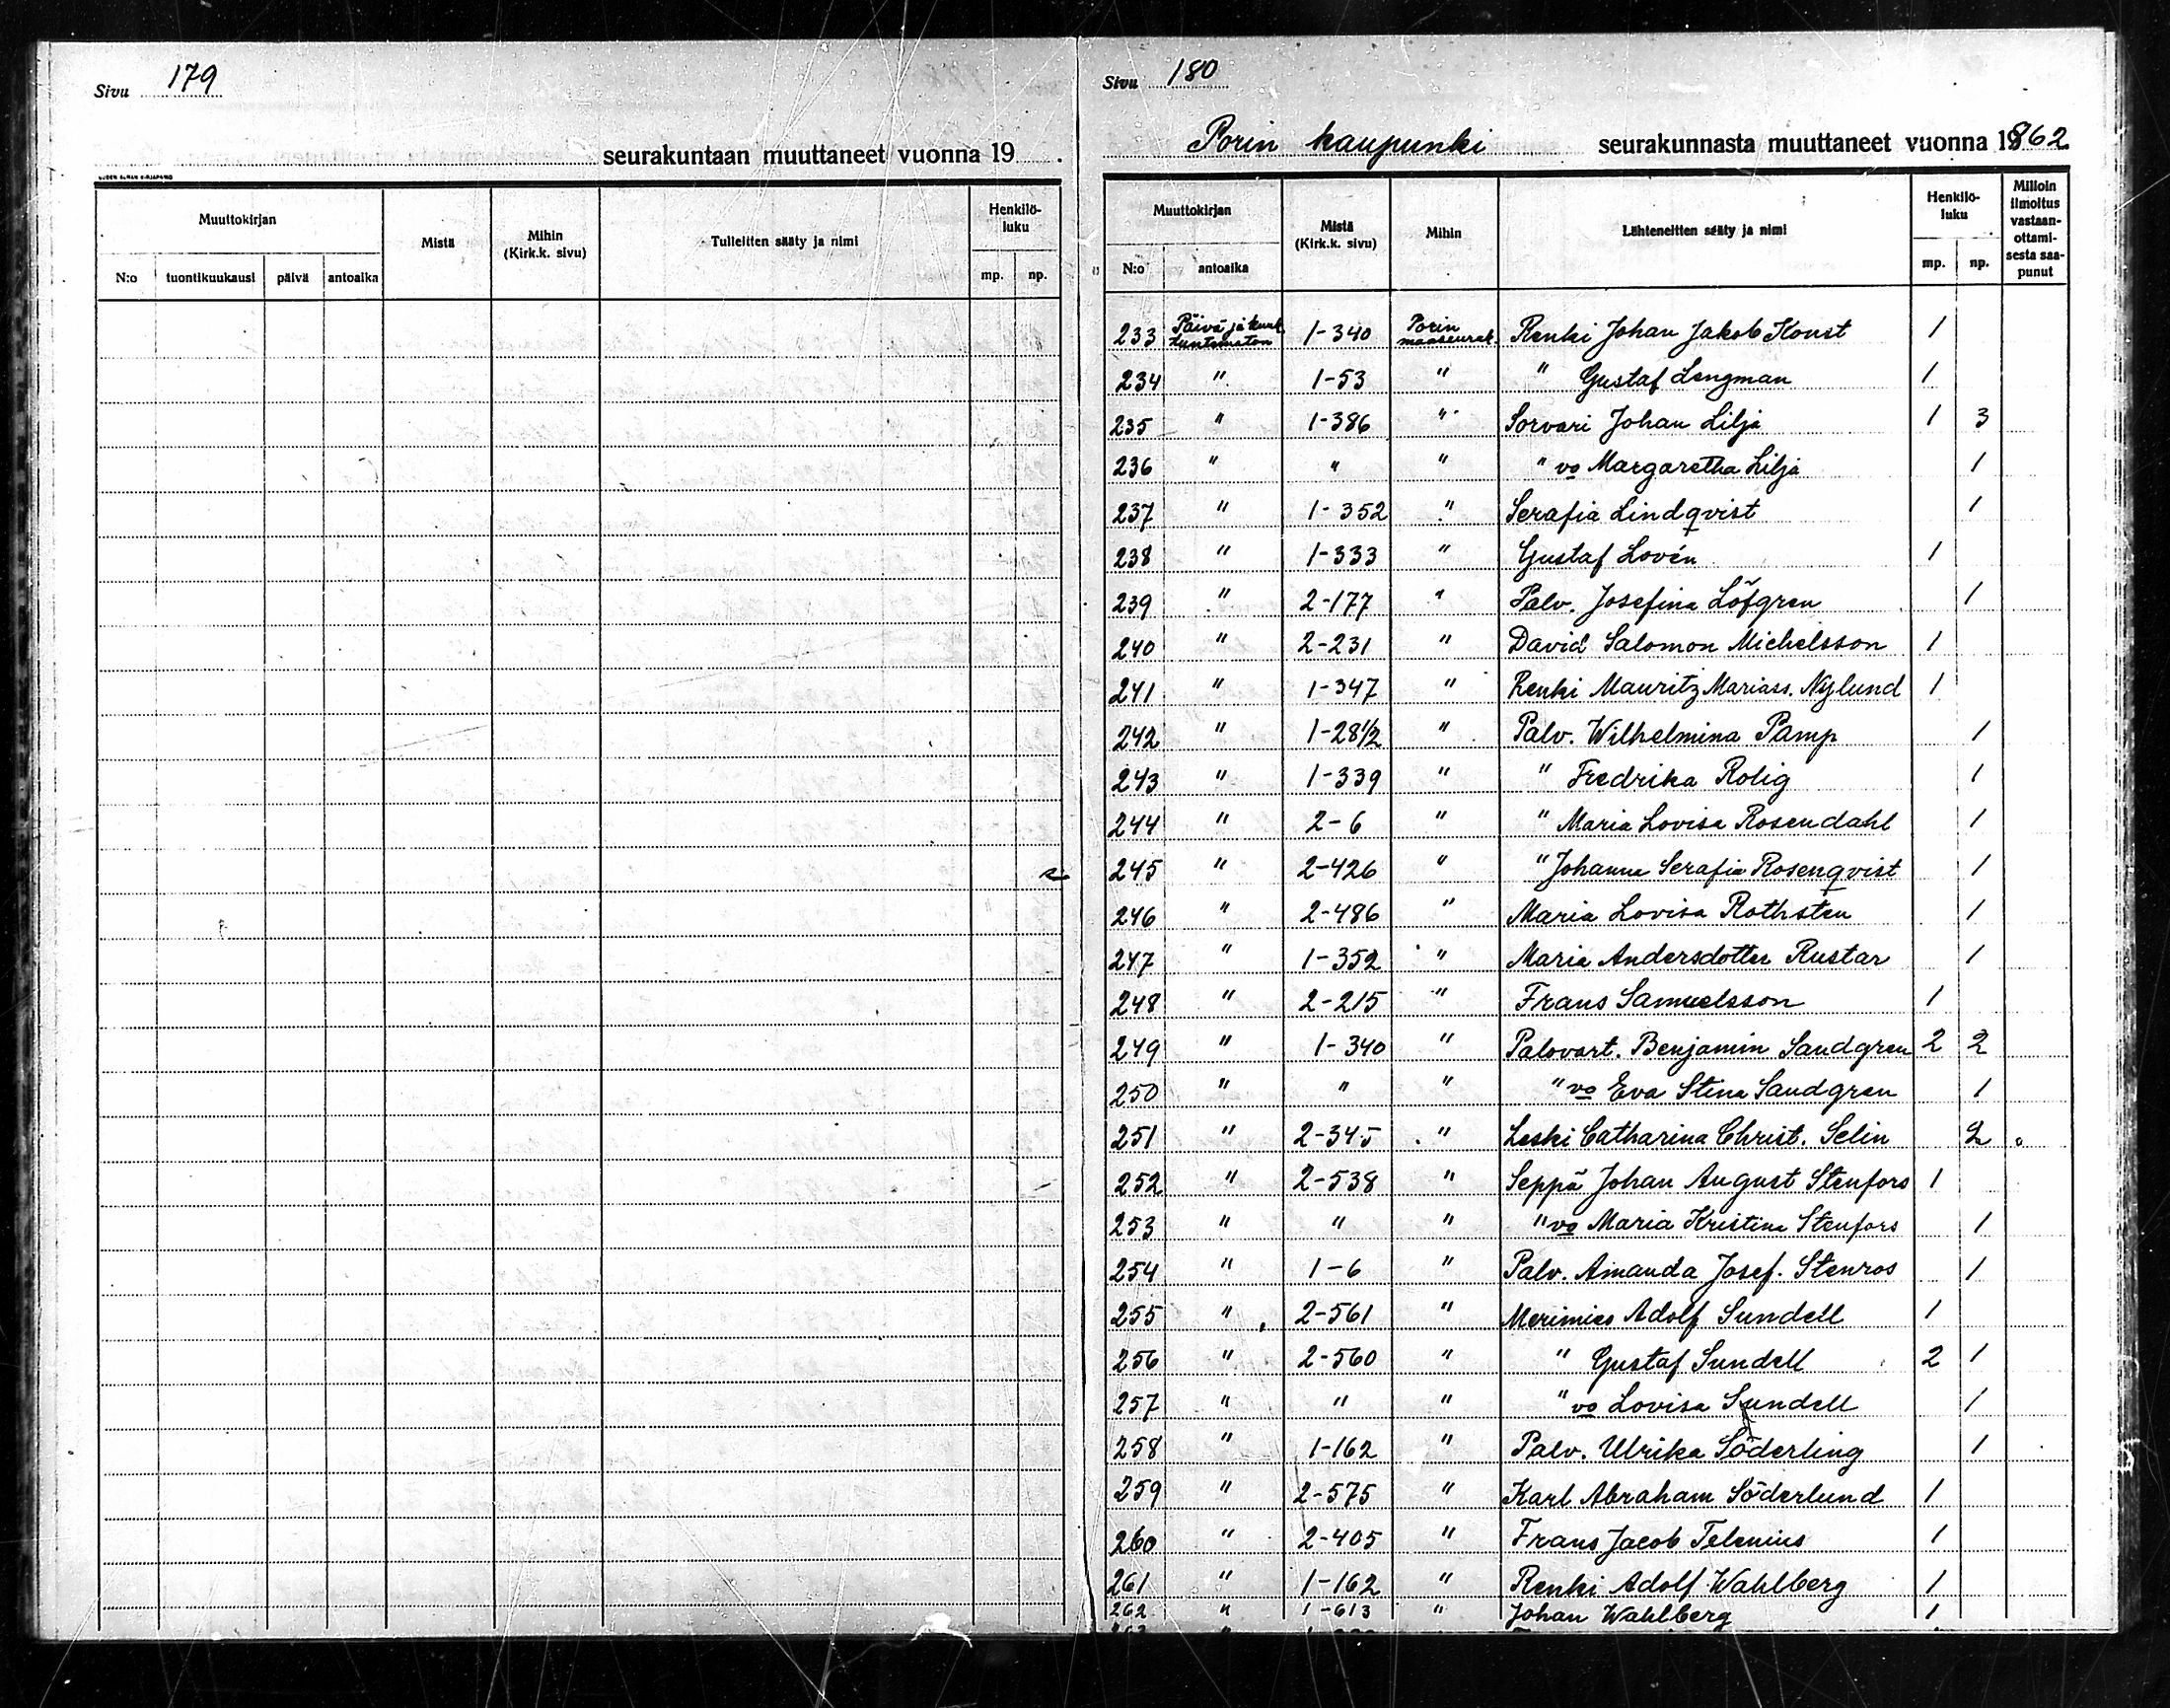 Sivu 179
seurakuntaan muuttaneet vuonna 19 .
UUDEN AURAN KIRJAPAINO
Muuttokirjan
Mistä
Mihin (Kirk.k. sivu)
Tulleitten sääty ja nimi
Henkilö-luku
N:o tuontikuukausi päivä antoaika mp. np.
Sivu 180
Porin kaupunki seurakunnasta muuttaneet vuonna 1862
Muuttokirjan
Mistä (Kirk.k. sivu)
Mihin
Lähteneitten sääty ja nimi
Henkilö-luku
Milloin ilmoitus vastaan-ottami-sesta saa-punut
N:o antoaika mp. np.
233 Päivä ja kuuk. tuntematon 1-340 Porin maaseurak. Renki Johan Jakob Konst 1
234 " 1-53 " " Gustaf Lengman 1
235 " 1-386 " Sorvari Johan Lilja 1 3
236 " " " " vo Margaretha Lilja 1
237 " 1-352 " Serafia Lindqvist 1
238 " 1-333 " Gustaf Lovén 1
239 " 2-177 " Palv. Josefina Löfgren 1
240 " 2-231 " David Salomon Michelsson 1
241 " 1-347 " Renki Mauritz Mariass. Nylund 1
242 " 1-28 1/2 " Palv. Wilhelmina Pamp 1
243 " 1-339 " " Fredrika Rolig 1
244 " 2-6 " " Maria Lovisa Rosendahl 1
245 " 2-426 " " Johanna Serafia Rosenqvist 1
246 " 2-486 " Maria Lovisa Rothsten 1
247 " 1-352 " Maria Andersdotter Rustar 1
248 " 2-215 " Frans Samuelsson 1
249 " 1-340 " Palovart. Benjamin Sandgren 2 2
250 " " " " vo Eva Stina Sandgren 1
251 " 2-345 " Leski Catharina Christ. Selin 2
252 " 2-538 " Seppä Johan August Stenfors 1
253 " " " " vo Maria Kristina Stenfors 1
254 " 1-6 " Palv. Amanda Josef. Stenros 1
255 " 2-561 " Merimies Adolf Sundell 1
256 " 2-560 " " Gustaf Sundell 2 1
257 " " " " vo Lovisa Sundell 1
258 " 1-162 " Palv. Ulrika Söderling 1
259 " 2-575 " Karl Abraham Söderlund 1
260 " 2-405 " Frans Jacob Telenius 1
261 " 1-162 " Renki Adolf Wahlberg 1
262 " 1-613 " Johan Wahlberg 1